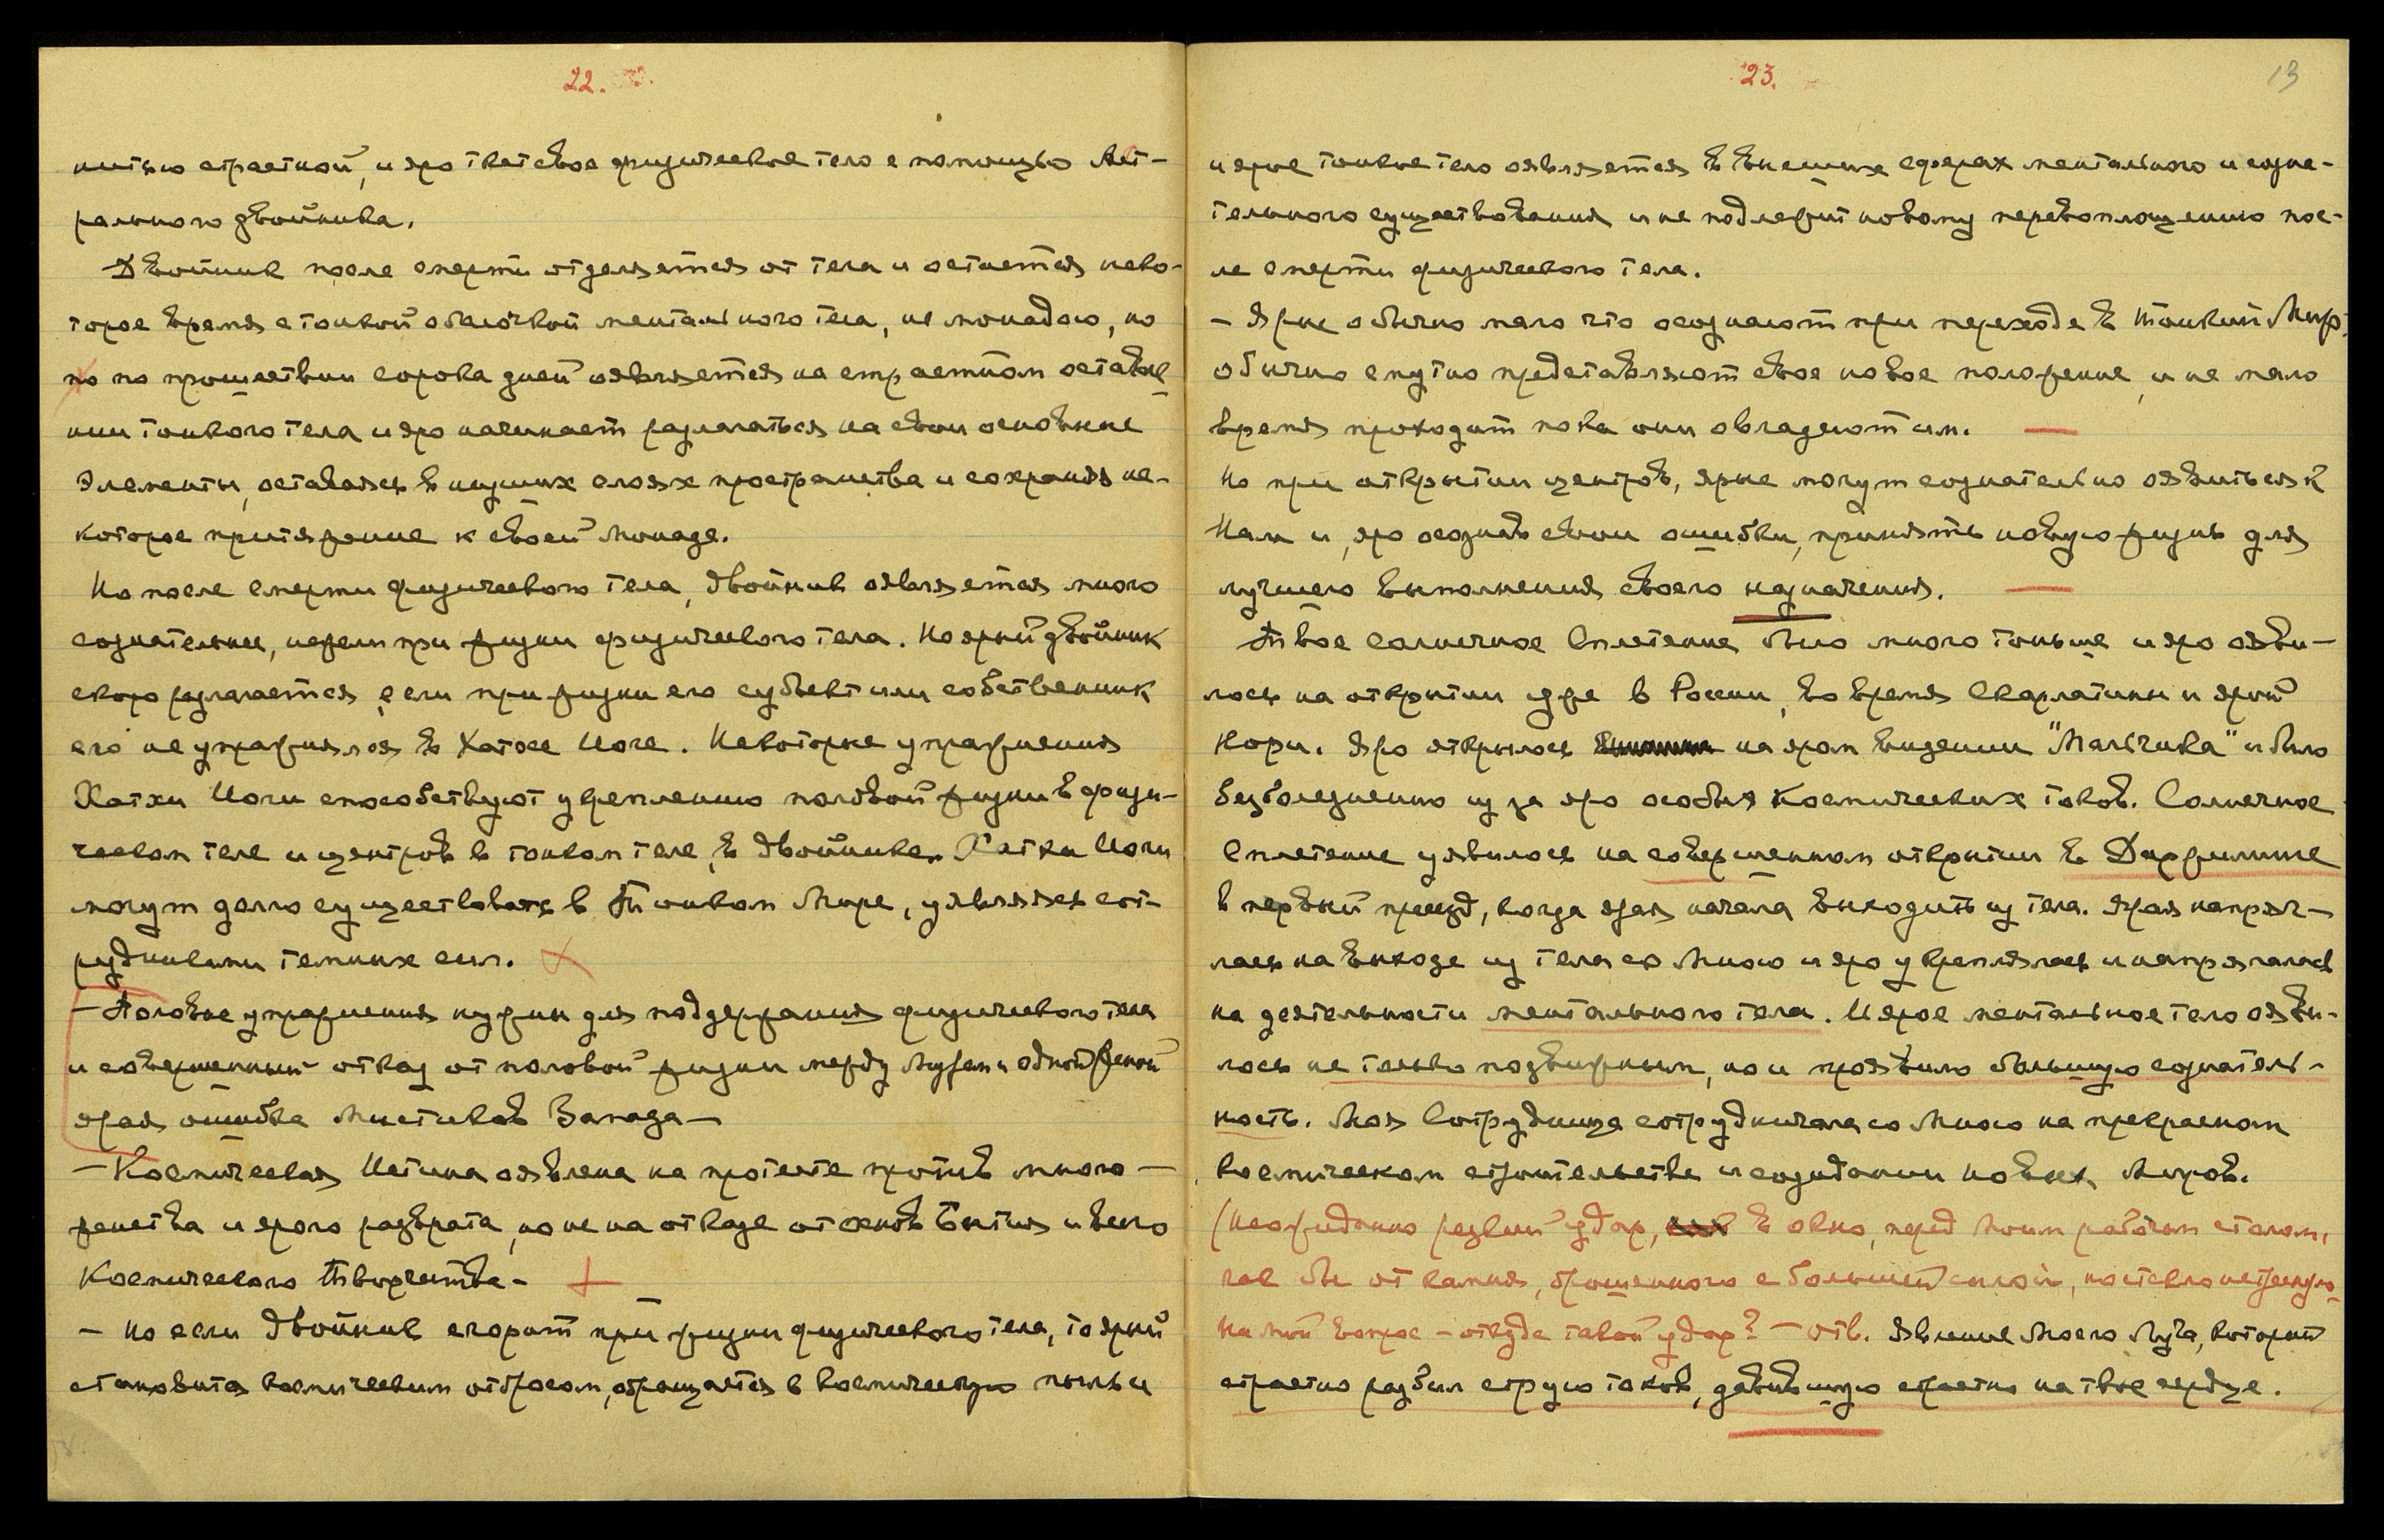 22.
нитью страстной, и яро ткет свое физическое тело с помощью Аст-
рального двойника.
Двойник после смерти отделяется от тела и остается неко-
торое время с тонкой оболочкой ментального тела, не монадою, но
по прошествии сорока дней является на страстном оставле-
нии тонкого тела и яро начинает разлагаться на свои основные
Элементы, оставаясь в низших слоях пространства и сохраняя не-
которое притяжение к своей Монаде.
Но после смерти физического тела, двойник является много
сознательнее, нежели при жизни физического тела. Но ярый двойник
скоро разлагается, если при жизни его субъект или собственник
его не упражнялся в Хатха Йоге. Некоторые упражнения
Хатхи Йоги способствуют укреплению половой жизни в физи-
ческом теле и центров в тонком теле, в двойнике. Хатхи Йоги
могут долго существовать в Тонком Мире, являясь сот-
рудниками темных сил.
– Половые упражнения нужны для поддержания физического тела
и совершенный отказ от половой жизни между Мужем и одной Женой
ярая ошибка Мистиков Запада –
– Космическая Истина явлена на протесте против много –
женства и ярого разврата, но не на отказе от основ Бытия и всего
Космического Творчества –
– Но если двойник сгорит при жизни физического тела, то ярый
становится космическим отбросом, обращается в космическую пыль и
23.
13
и ярое тонкое тело является в высших сферах ментального и созна-
тельного существования и не подлежит новому перевоплощению пос-
ле смерти физического тела.
– Ярые обычно мало что осознают при переходе в Тонкий Мир,
обычно смутно представляют свое новое положение, и не мало
время проходит пока они овладеют им. —
Но при открытии центров, ярые могут сознательно явиться к
Нам и, яро осознав свои ошибки, принять новую жизнь для
лучшего выполнения своего назначения. —
Твое Солнечное Сплетение было много тоньше и яро яви-
лось на открытии уже в России, во время Скарлатины и ярой
Кори. Яро открылось на яром видении "Мальчика" и было
безболезненно из за яро особых Космических токов. Солнечное
Сплетение уявилось на совершенном открытии в Дарджилинге
в первый приезд, когда ярая начала выходить из тела. Ярая напряг-
лась на выходе из тела со Мною и яро укреплялась и напрягалась
на деятельности ментального тела. И ярое ментальное тело яви-
лось не только подвижным, но и проявило большую сознатель-
ность. Моя Сотрудница сотрудничала со Мною на прекрасном
космическом строительстве и созидании новых Миров.
(Неожиданно резкий удар, в окно, перед моим рабочим столом,
как бы от камня, брошенного с большей силой, но стекло не треснуло.
На мой вопрос – откуда такой удар? – отв. Явление Моего Луча, который
страстно разбил струю токов, давившую страстно на твое сердце.